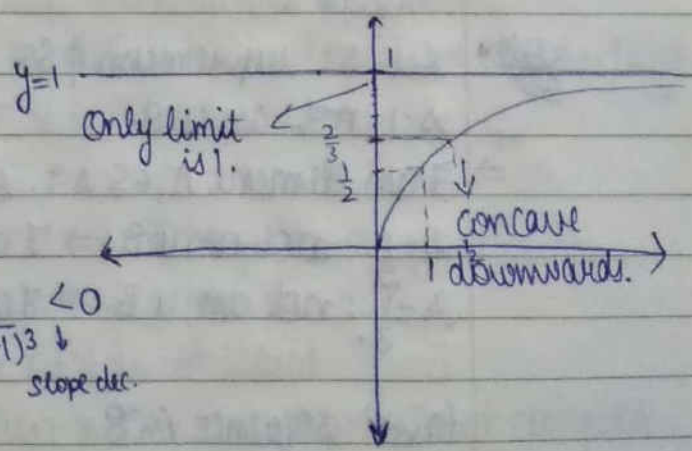 y=1
1
Only limit
is 1.
2/3
1/2
concave
1 2 downwards.
<0
1)³ ↓
slope dec.